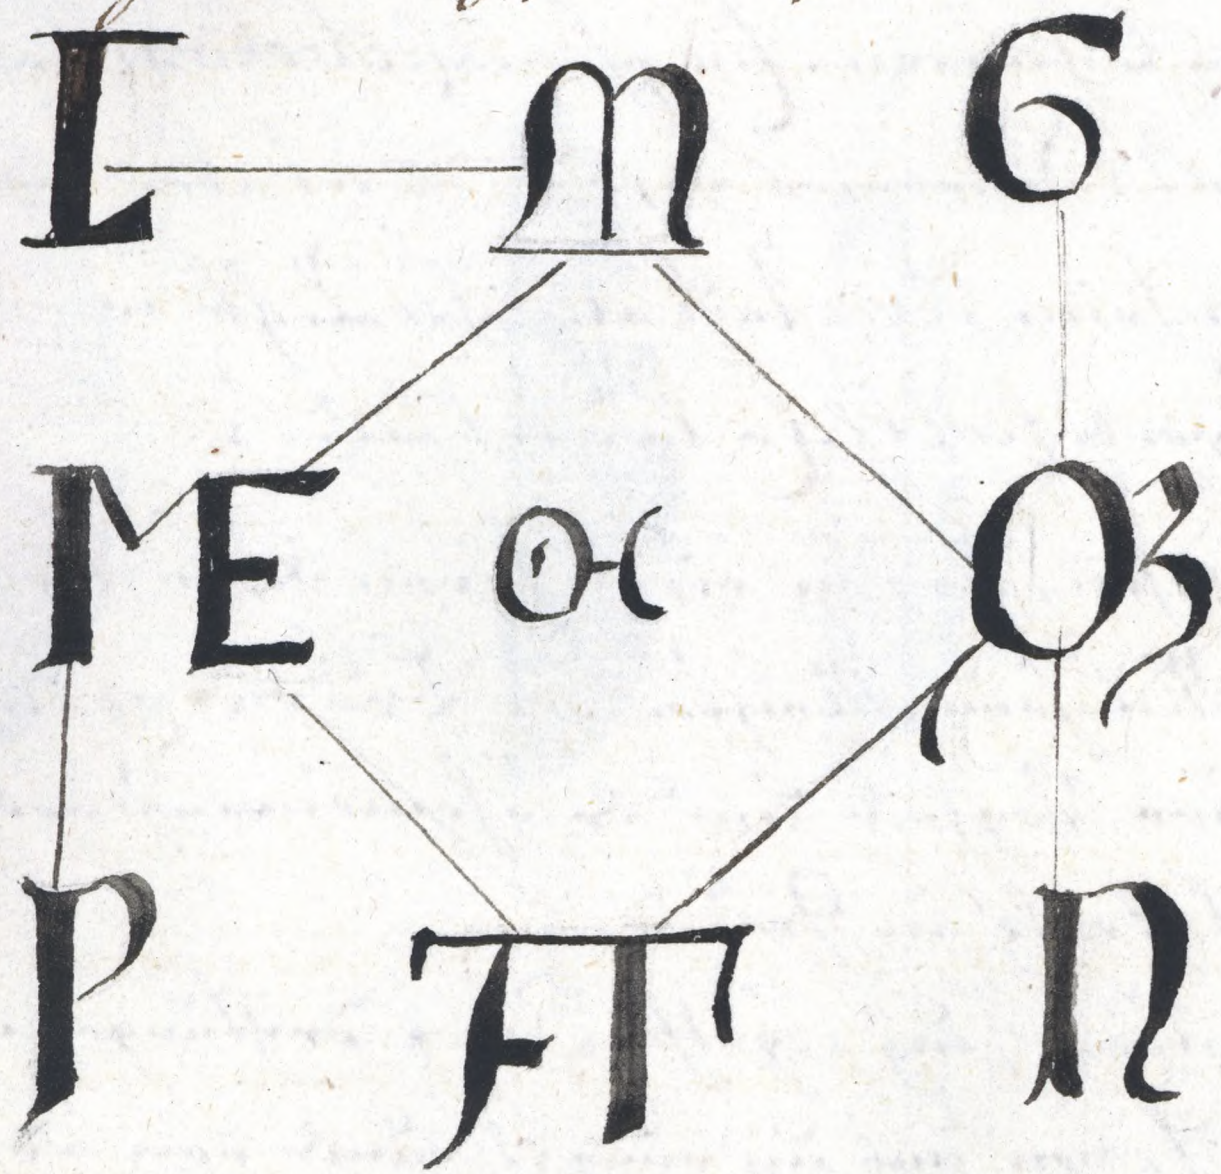 L M G
ME OC OZ
P FT N